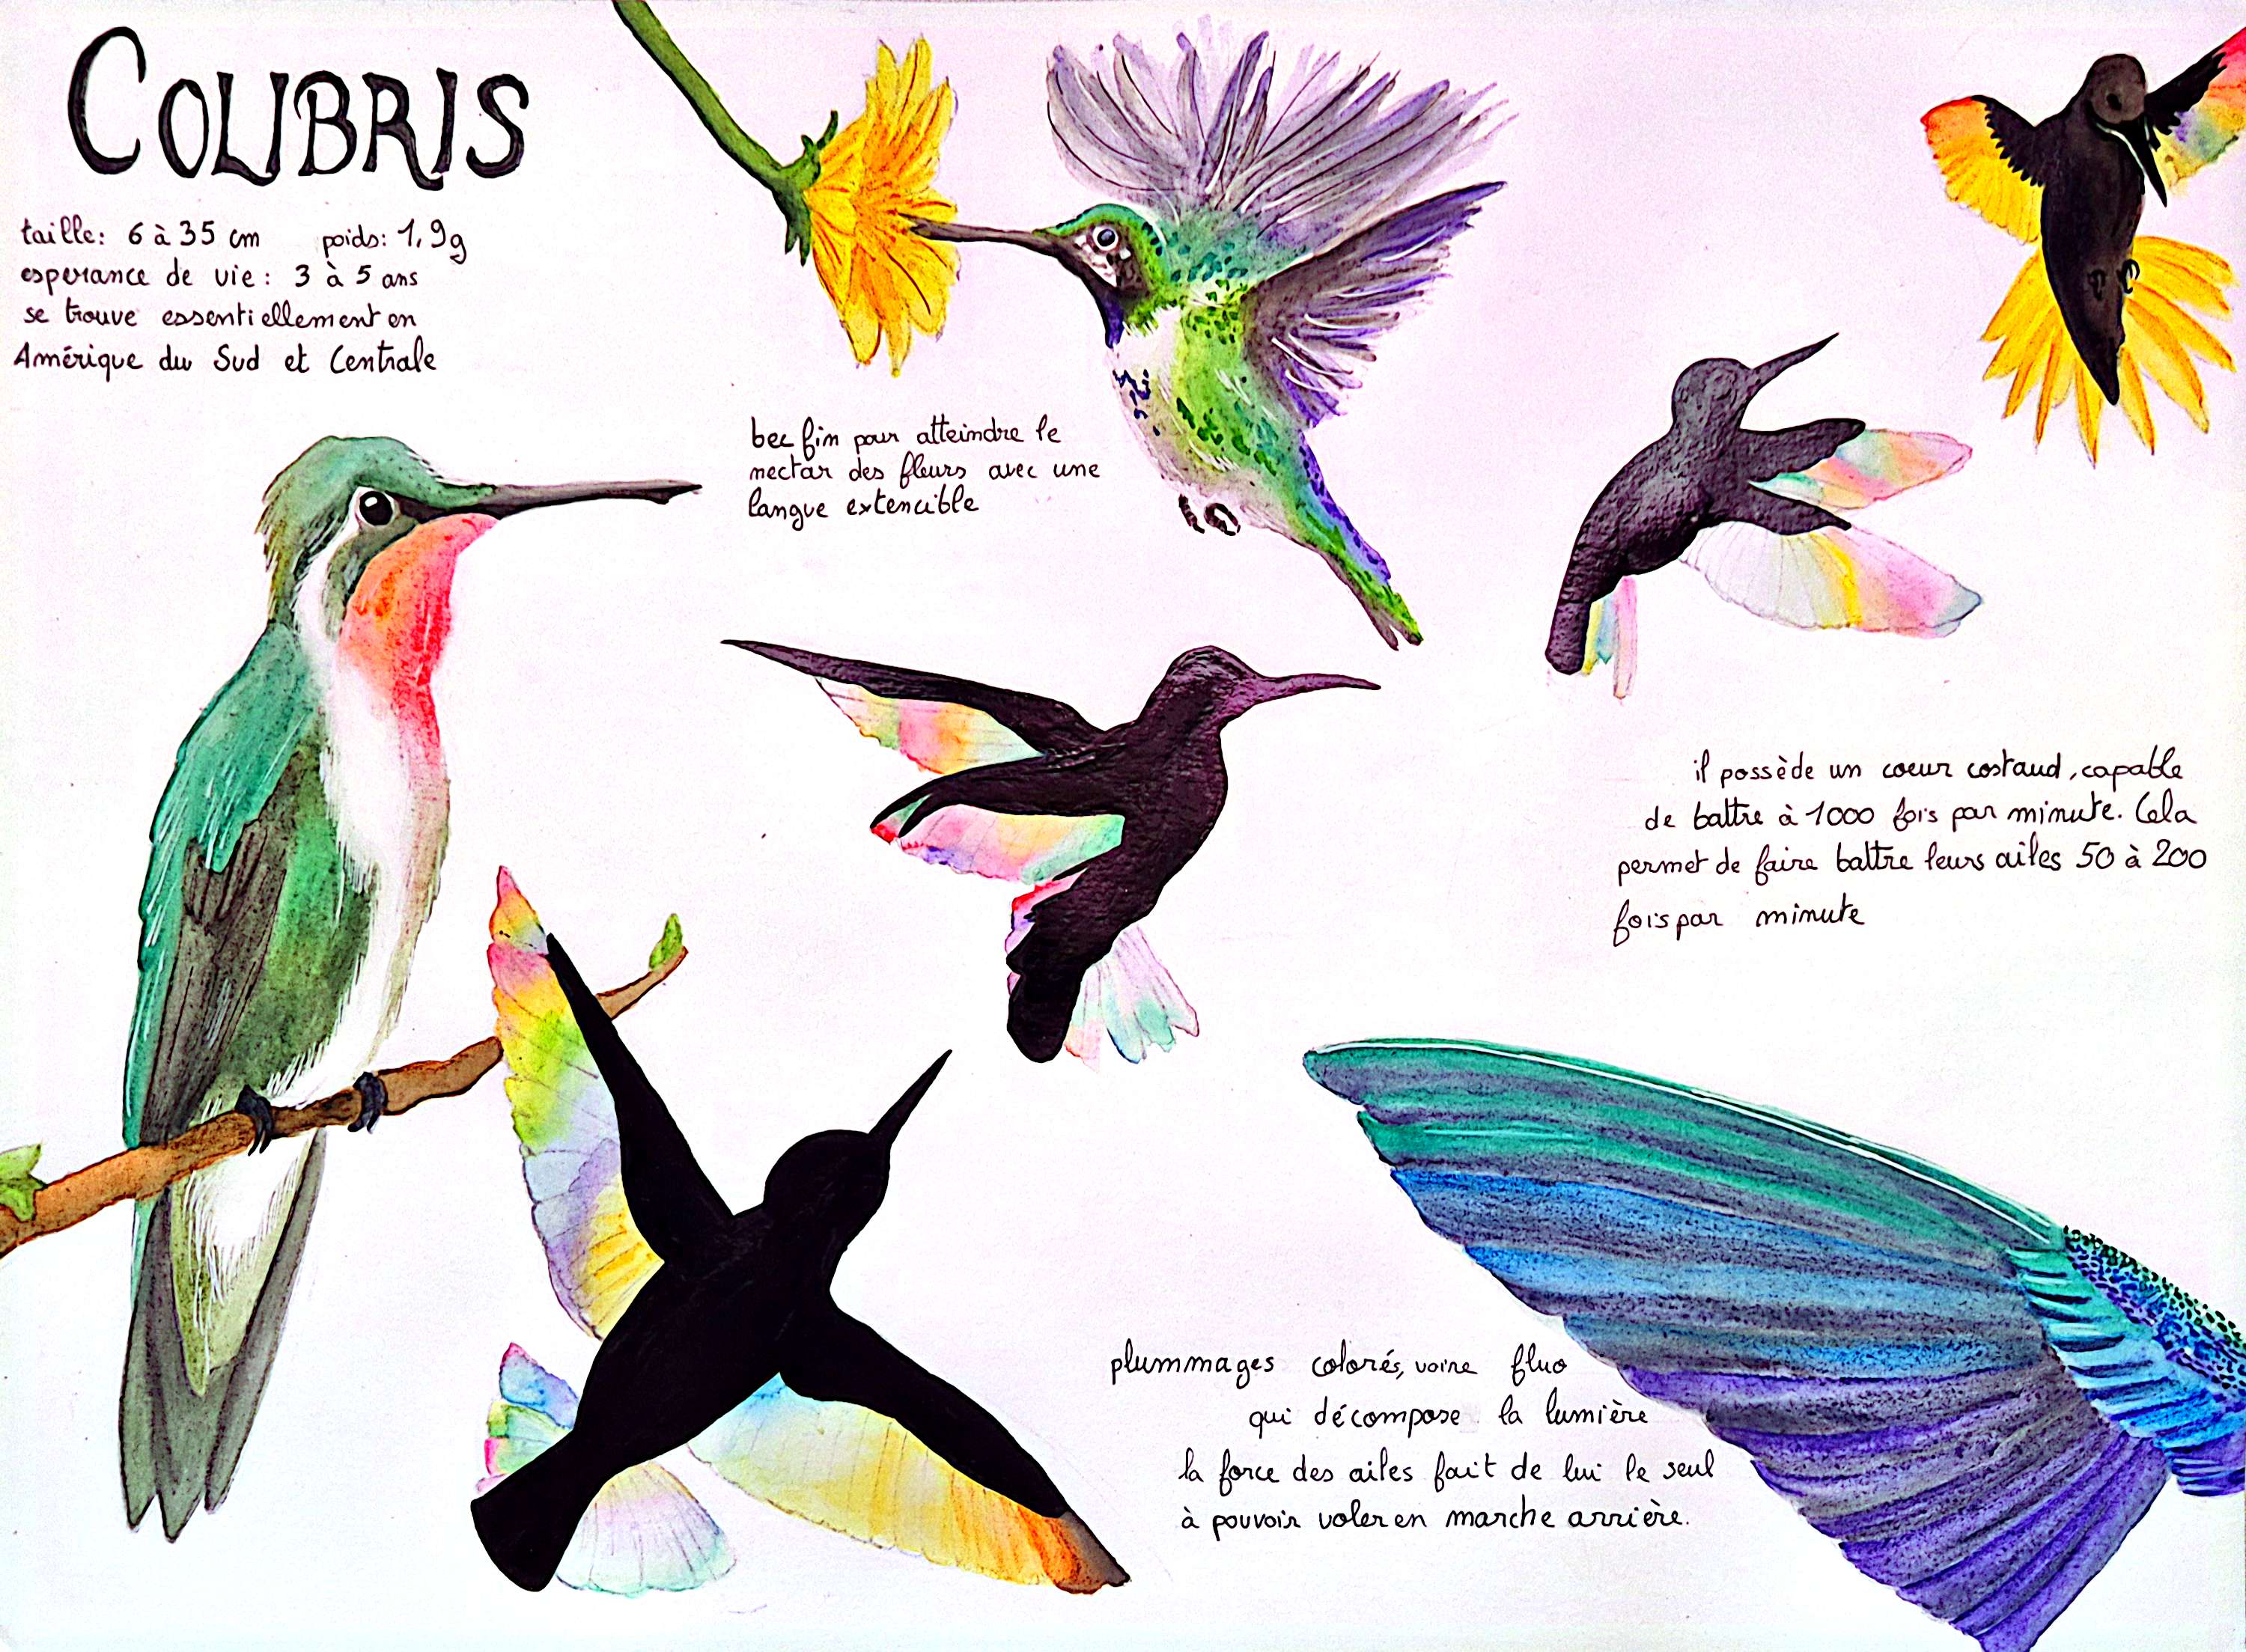 COLIBRIS
taille: 6 à 35 cm poids: 1,9g
esperance de vie: 3 à 5 ans
se trouve essentiellement en
Amérique du Sud et Centrale
bec fin pour atteindre le
nectar des fleurs avec une
langue extencible
il possède un coeur costaud, capable
de battre à 1000 fois par minute. Cela
permet de faire battre leurs ailes 50 à 200
fois par minute
plummages colorés, voire fluo
qui décompose la lumière
la force des ailes fait de lui le seul
à pouvoir voler en marche arrière.